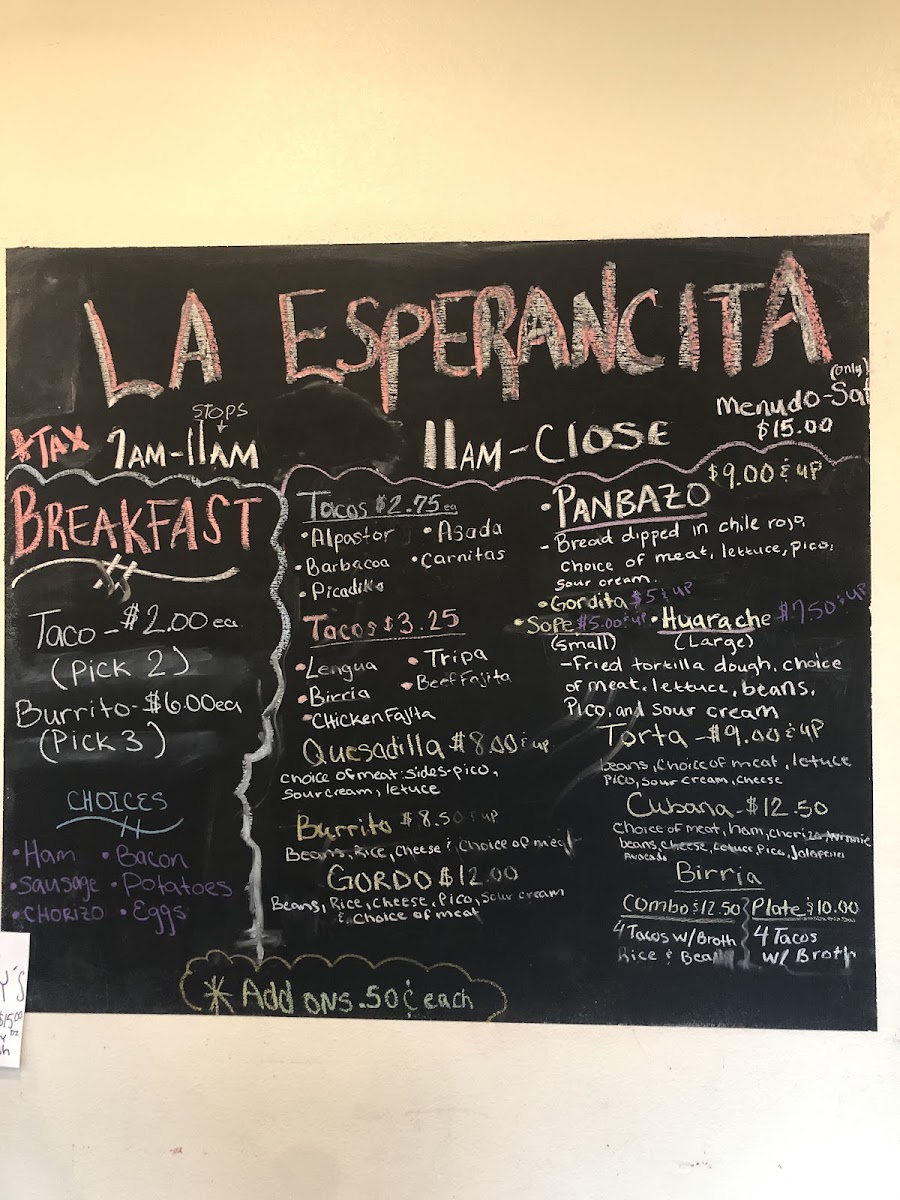 LA ESPERANCITA
(only)
Menudo-Sat
$15.00
STOPS
*TAX 7AM-11AM
11AM-Close
BREAKFAST
Taco-$2.00 ea.
(Pick 2)
Burrito-$6.00ea
(Pick 3)
CHOICES
•Ham •Bacon
•Sausage •Potatoes
•CHORIZO •Eggs
Tacos $2.75 ea
•Alpastor •Asada
•Barbacoa •Carnitas
•Picadillo
Tacos $3.25
•Lengua •Tripa
•Birria •Beef Fajita
•Chicken Fajita
Quesadilla $8.00 & up
choice of meat: sides-pico,
sour cream, letuce
Burrito $8.50 & up
Beans, Rice, Cheese & Choice of meat
GORDO $12.00
Beans, Rice, cheese, Pico, sour cream
& choice of meat
$9.00 & up
•PANBAZO
- Bread dipped in chile rojo,
choice of meat, lettuce, pico,
sour cream.
•Gordita $5 & up
•Sope $5.00 & up •Huarache $7.50 & up
(small) (Large)
-Fried tortilla dough, choice
of meat, lettuce, beans,
Pico, and sour cream
Torta-$9.00 & up
beans, choice of meat, letuce
Pico, sour cream, cheese
Cubana-$12.50
choice of meat, ham, chorizo, winnie
beans, cheese, Letuce, Pico, Jalapeños
Avocado
Birria
Combo $12.50 Plate $10.00
4 Tacos w/Broth 4 Tacos
Rice & Bean w/ Broth
* Add ons .50¢ each
Y'S
$15.00